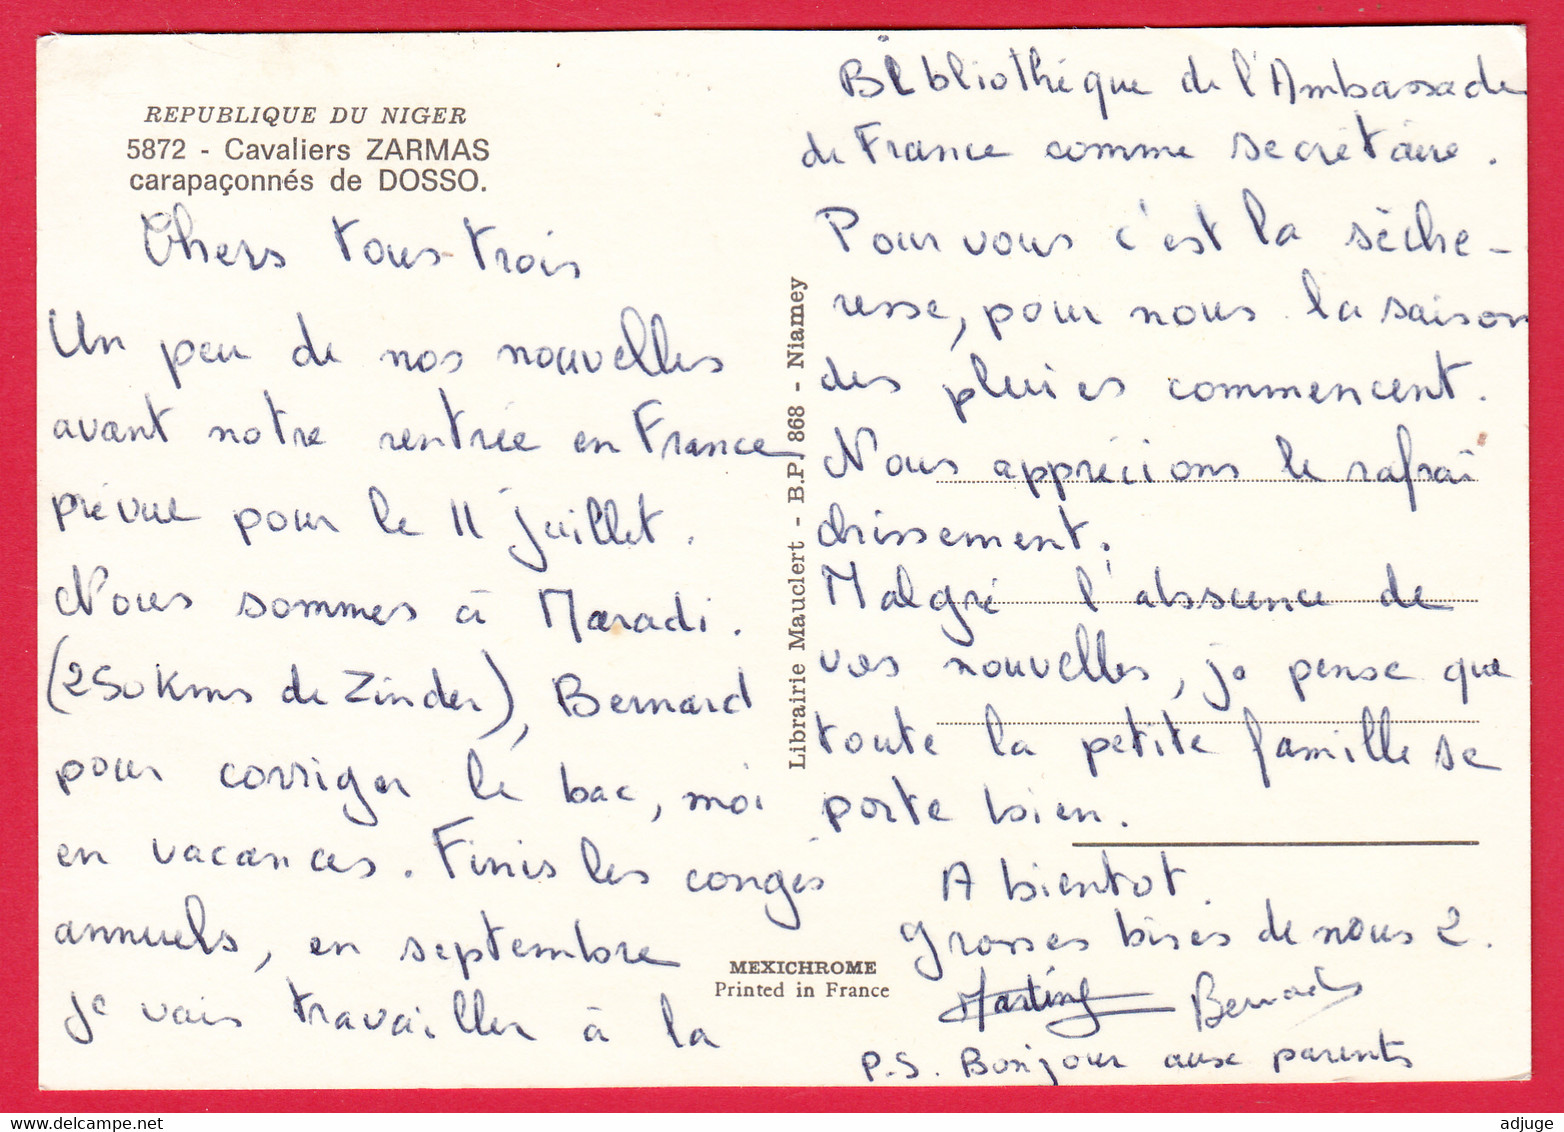 REPUBLIQUE DU NIGER
5872 - Cavaliers ZARMAS
carapaçonnés de DOSSO.
Chers tous trois
Un peu de nos nouvelles
avant notre rentrée en France
prévue pour le 11 juillet.
Nous sommes à Maradi.
(250 Kms de Zinder), Bernard
pour corriger le bac, moi
en vacances. Finis les congés
annuels, en septembre
je vais travailler à la
Librairie Mauclert - B.P. 868 - Niamey
MEXICHROME
Printed in France
Bibliothéque de l'Ambassade
de France comme secrétaire.
Pour vous c'est la séche-
resse, pour nous la saison
des pluies commencent.
Nous apprécions le rafraî
chissement.
Malgré l'abscence de
vos nouvelles, je pense que
toute la petite famille se
porte bien.
A bientot.
Grosses bises de nous 2.
Martine Bernard
P.S. Bonjour aux parents
adjuge
delcampe.net